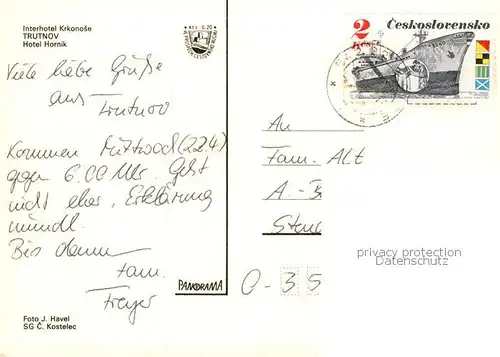 Interhotel Krkonoše
TRUTNOV
Hotel Horník
Kčs 0,20
2
Kčs
Československo
Viele liebe Grüße
aus Trutnov
Kommen Mittwoch (22.4)
gegen 6.00 Uhr. Geht
nicht eher, Erklärung
mündl.
Bis dann
Fam.
Freyer
An
Fam. Alt
A.-B
Stend
O-35
privacy protection
Datenschutz
PANORAMA
Foto J. Havel
SG Č. Kostelec